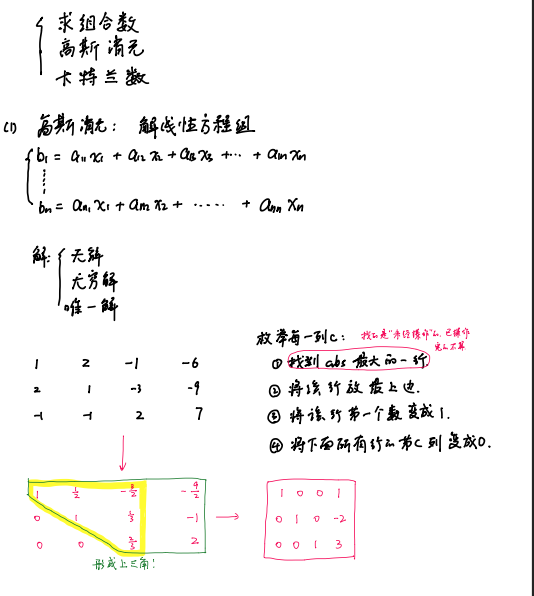 求组合数
高斯消元
卡特兰数
(1) 高斯消元： 解线性方程组
b₁ = a₁₁x₁ + a₁₂x₂ + a₁₃x₃ + ... + a₁ₙxₙ
bₙ = aₙ₁x₁ + aₙ₂x₂ + ...... + aₙₙxₙ
解:
无解
无穷解
唯一解
枚举每一列c：
找的是"未经操作"的，已操作
完的不算
① 找到abs最大的一行.
② 将该行放最上边.
③ 将该行第一个数变成1.
④ 将下面所有行的第c列变成0.
1 2 -1 -6
2 1 -3 -9
-1 -1 2 7
1 1/2 -3/2 -9/2
0 1 1/3 -1
0 0 2/3 2
形成上三角！
1 0 0 1
0 1 0 -2
0 0 1 3